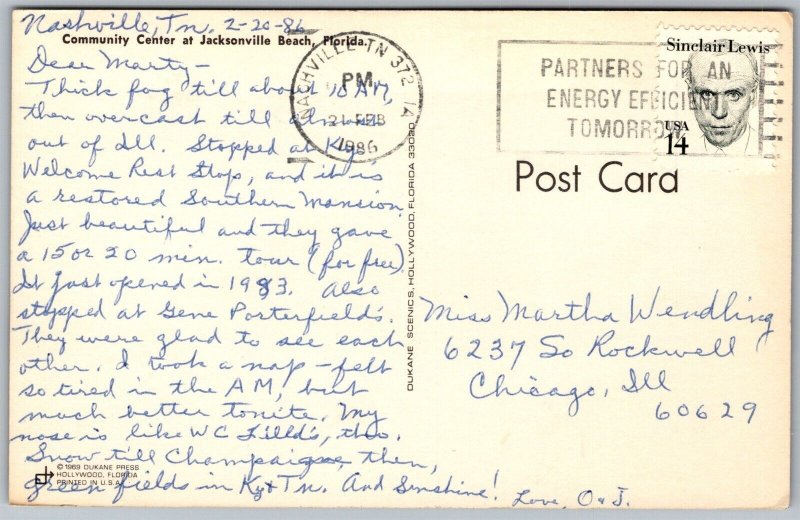 Nashville, Tn. 2-20-86
Community Center at Jacksonville Beach, Florida.
Dear Marty-
Thick fog till about 10 AM,
then overcast till almost
out of Ill. Stopped at Ky
Welcome Rest Stop, and it is
a restored Southern Mansion.
Just beautiful and they gave
a 15 or 20 min. tour (for free).
It just opened in 1983. Also
stopped at Gene Porterfield's.
They were glad to see each
other. I took a nap - felt
so tired in the AM, but
much better tonite. My
nose is like WC Filld's, tho.
Snow till Champaigne, then,
green fields in Ky + Tn. And Sunshine!
Love, O & J.
© 1969 DUKANE PRESS
HOLLYWOOD, FLORIDA
PRINTED IN U.S.A.
DUKANE SCENICS, HOLLYWOOD, FLORIDA 33020
NASHVILLE TN 372 1A
PM
21 FEB
1986
PARTNERS FOR AN
ENERGY EFFICIENT
TOMORROW
Sinclair Lewis
USA
14
Post Card
Miss Martha Wendling
6237 So Rockwell
Chicago, Ill
60629